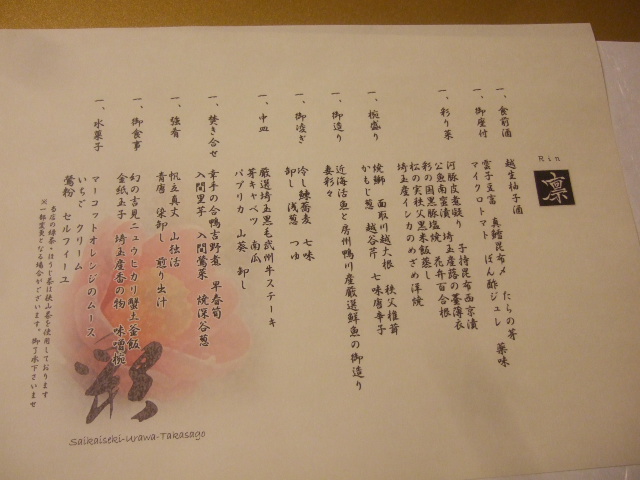 Rin
凛
一、食前酒
越生柚子酒
一、御座付
雲子豆富 真鱈昆布〆 たらの芽 薬味
マイクロトマト ぽん酢ジュレ
一、彩り菜
河豚皮煮凝り 子持昆布西京漬
公魚南蛮漬 埼玉産蕗の薹薄衣
彩の国黒豚塩焼 花弁百合根
松の実秩父黒米飯蒸し
埼玉産イシカのめざめ洋焼
一、椀盛り
焼鰤 面取川越大根 秩父椎茸
かもじ葱 越谷芹 七味唐辛子
一、御造り
近海活魚と房州鴨川産厳選鮮魚の御造り
妻彩々
一、御凌ぎ
冷し鰊蕎麦 七味
卸し 浅葱 つゆ
一、中皿
厳選埼玉黒毛武州牛ステーキ
芽キャベツ 南瓜
パプリカ 山葵 卸し
一、焚き合せ
幸手の合鴨吉野煮 早春筍
入間里芋 入間鶯菜 焼深谷葱
一、強肴
帆立真丈 山独活
青唐 染卸し 煎り出汁
一、御食事
幻の吉見ニュウヒカリ蟹土釜飯
金紙玉子 埼玉産香の物 味噌椀
一、水菓子
マーコットオレンジのムース
いちご クリーム
鶯粉 セルフィーユ
※一部変更となる場合がございます。御了承下さいませ
当店の緑茶・ほうじ茶は狭山茶を使用しております
Saikaiseki-Urawa-Takasago